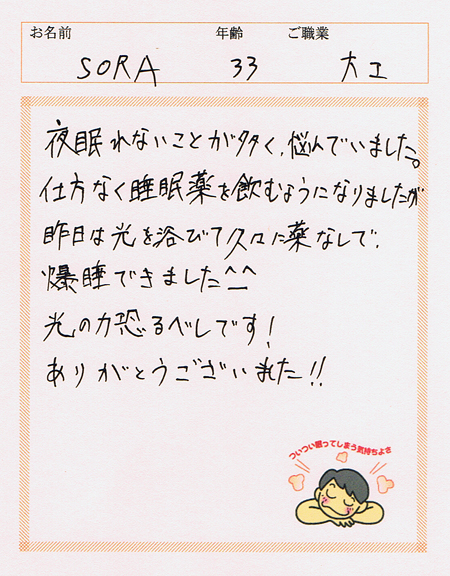 お名前 年齢 ご職業
SORA 33 大工
夜眠れないことが多く、悩んでいました。
仕方なく睡眠薬を飲むようになりましたが
昨日は光を浴びて久々に薬なしで、
爆睡できました^_^
光の力恐るべしです!
ありがとうございました!!
ついつい眠ってしまう気持ちよさ